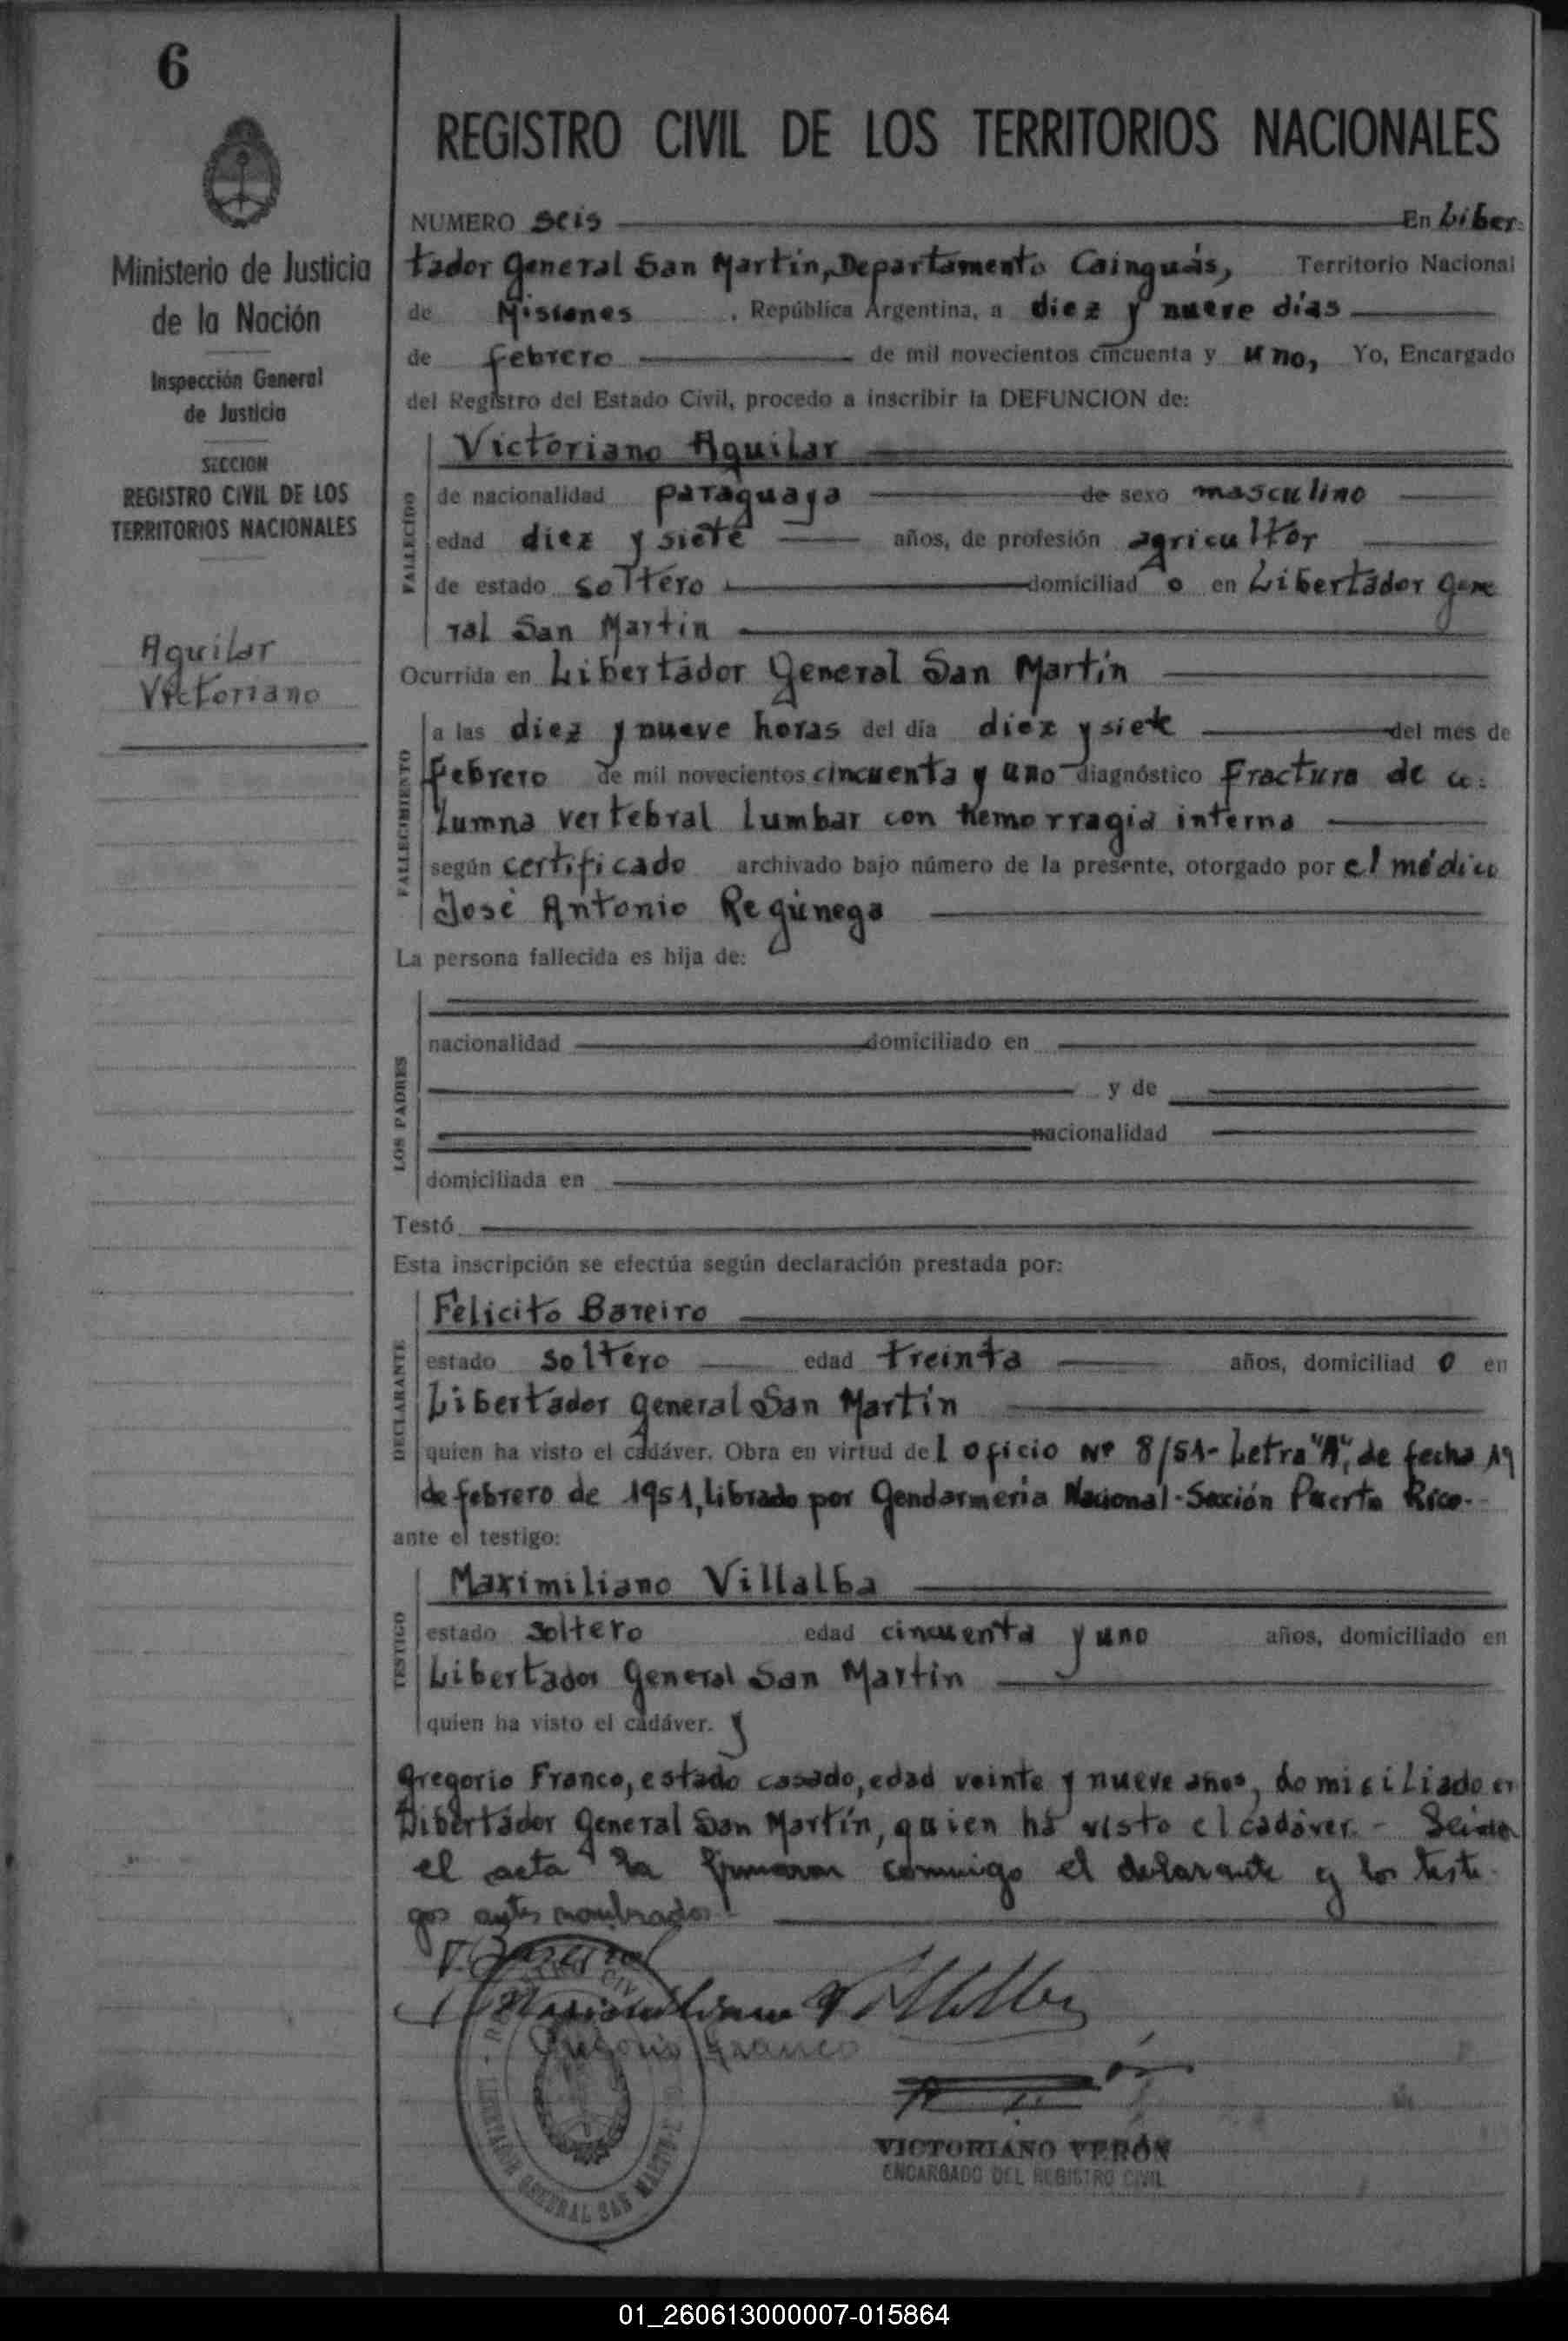 6
Ministerio de Justicia
de la Nación
Inspección General
de Justicia
SECCION
REGISTRO CIVIL DE LOS
TERRITORIOS NACIONALES
Aguilar
Victoriano
REGISTRO CIVIL DE LOS TERRITORIOS NACIONALES
NUMERO seis En Liber-
tador General San Martín, Departamento Cainguás, Territorio Nacional
de Misiones, República Argentina, a diez y nueve días
de febrero de mil novecientos cincuenta y uno, Yo, Encargado
del Registro del Estado Civil, procedo a inscribir la DEFUNCION de:
FALLECIDO
Victoriano Aguilar
de nacionalidad paraguaya de sexo masculino
edad diez y siete años, de profesión agricultor
de estado soltero domiciliado en Libertador Gene
ral San Martín
Ocurrida en Libertador General San Martín
FALLECIMIENTO
a las diez y nueve horas del día diez y siete del mes de
febrero de mil novecientos cincuenta y uno diagnóstico Fractura de co-
lumna vertebral lumbar con hemorragia interna
según certificado archivado bajo número de la presente, otorgado por el médico
José Antonio Regúnega
La persona fallecida es hija de:
LOS PADRES
nacionalidad domiciliado en
y de
nacionalidad
domiciliada en
Testó
Esta inscripción se efectúa según declaración prestada por:
DECLARANTE
Felicito Bareiro
estado soltero edad treinta años, domiciliado en
Libertador General San Martín
quien ha visto el cadáver. Obra en virtud del oficio Nº 8/51- Letra "A", de fecha 19
de febrero de 1951, librado por Gendarmería Nacional - Sección Puerto Rico.-
ante el testigo:
TESTIGO
Maximiliano Villalba
estado soltero edad cincuenta y uno años, domiciliado en
Libertador General San Martín
quien ha visto el cadáver. y
Gregorio Franco, estado casado, edad veinte y nueve años, domiciliado en
Libertador General San Martín, quien ha visto el cadáver.- Leida
el acta la firmaron conmigo el declarante y los testi-
gos antes nombrados.-
F. Bareiro
Maximiliano Villalba
Gregorio Franco
LIBERTADOR GENERAL SAN MARTIN
VICTORIANO VERÓN
ENCARGADO DEL REGISTRO CIVIL
01_260613000007-015864